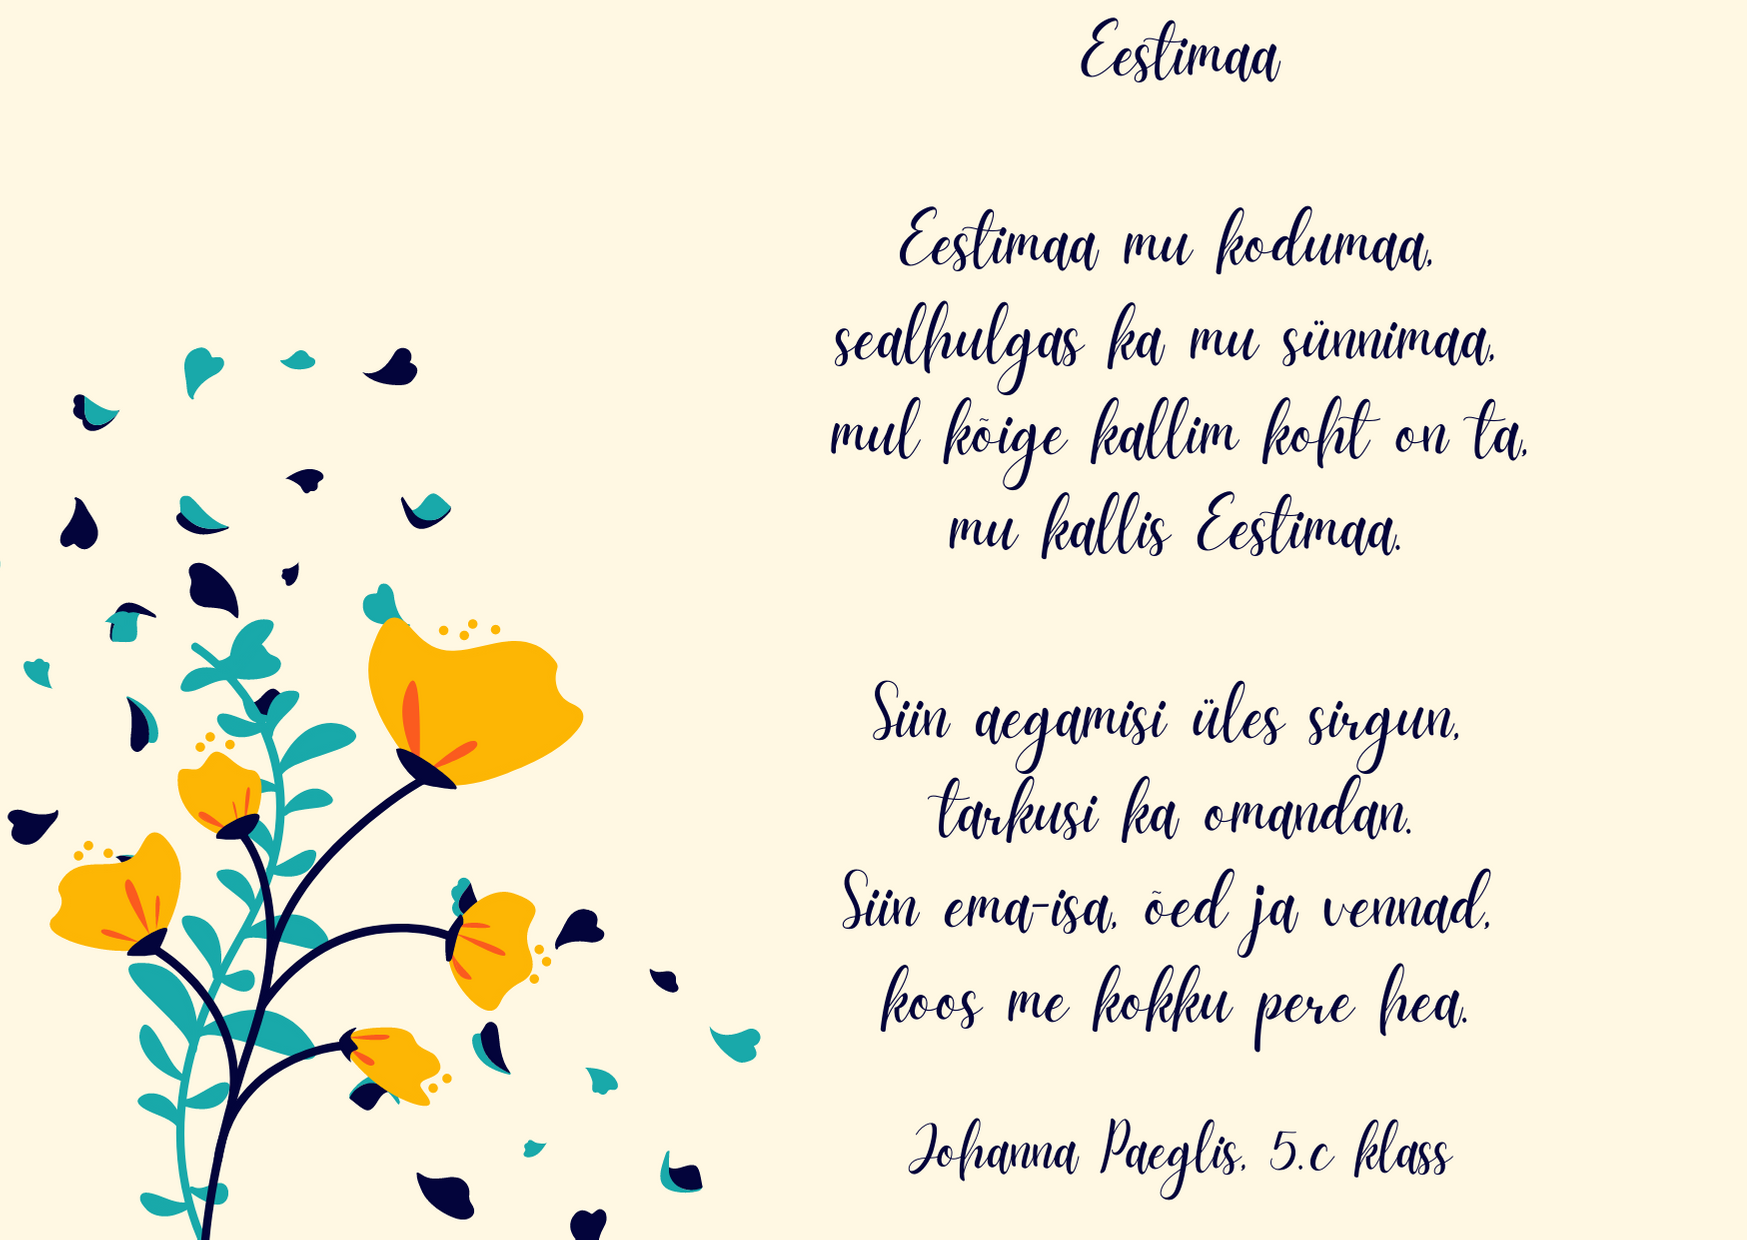 Eestimaa
Eestimaa mu kodumaa,
sealhulgas ka mu sünnimaa,
mul kõige kallim koht on ta,
mu kallis Eestimaa.
Siin aegamisi üles sirgun,
tarkusi ka omandan.
Siin ema-isa, õed ja vennad,
koos me kokku pere hea.
Johanna Paeglis, 5.c klass